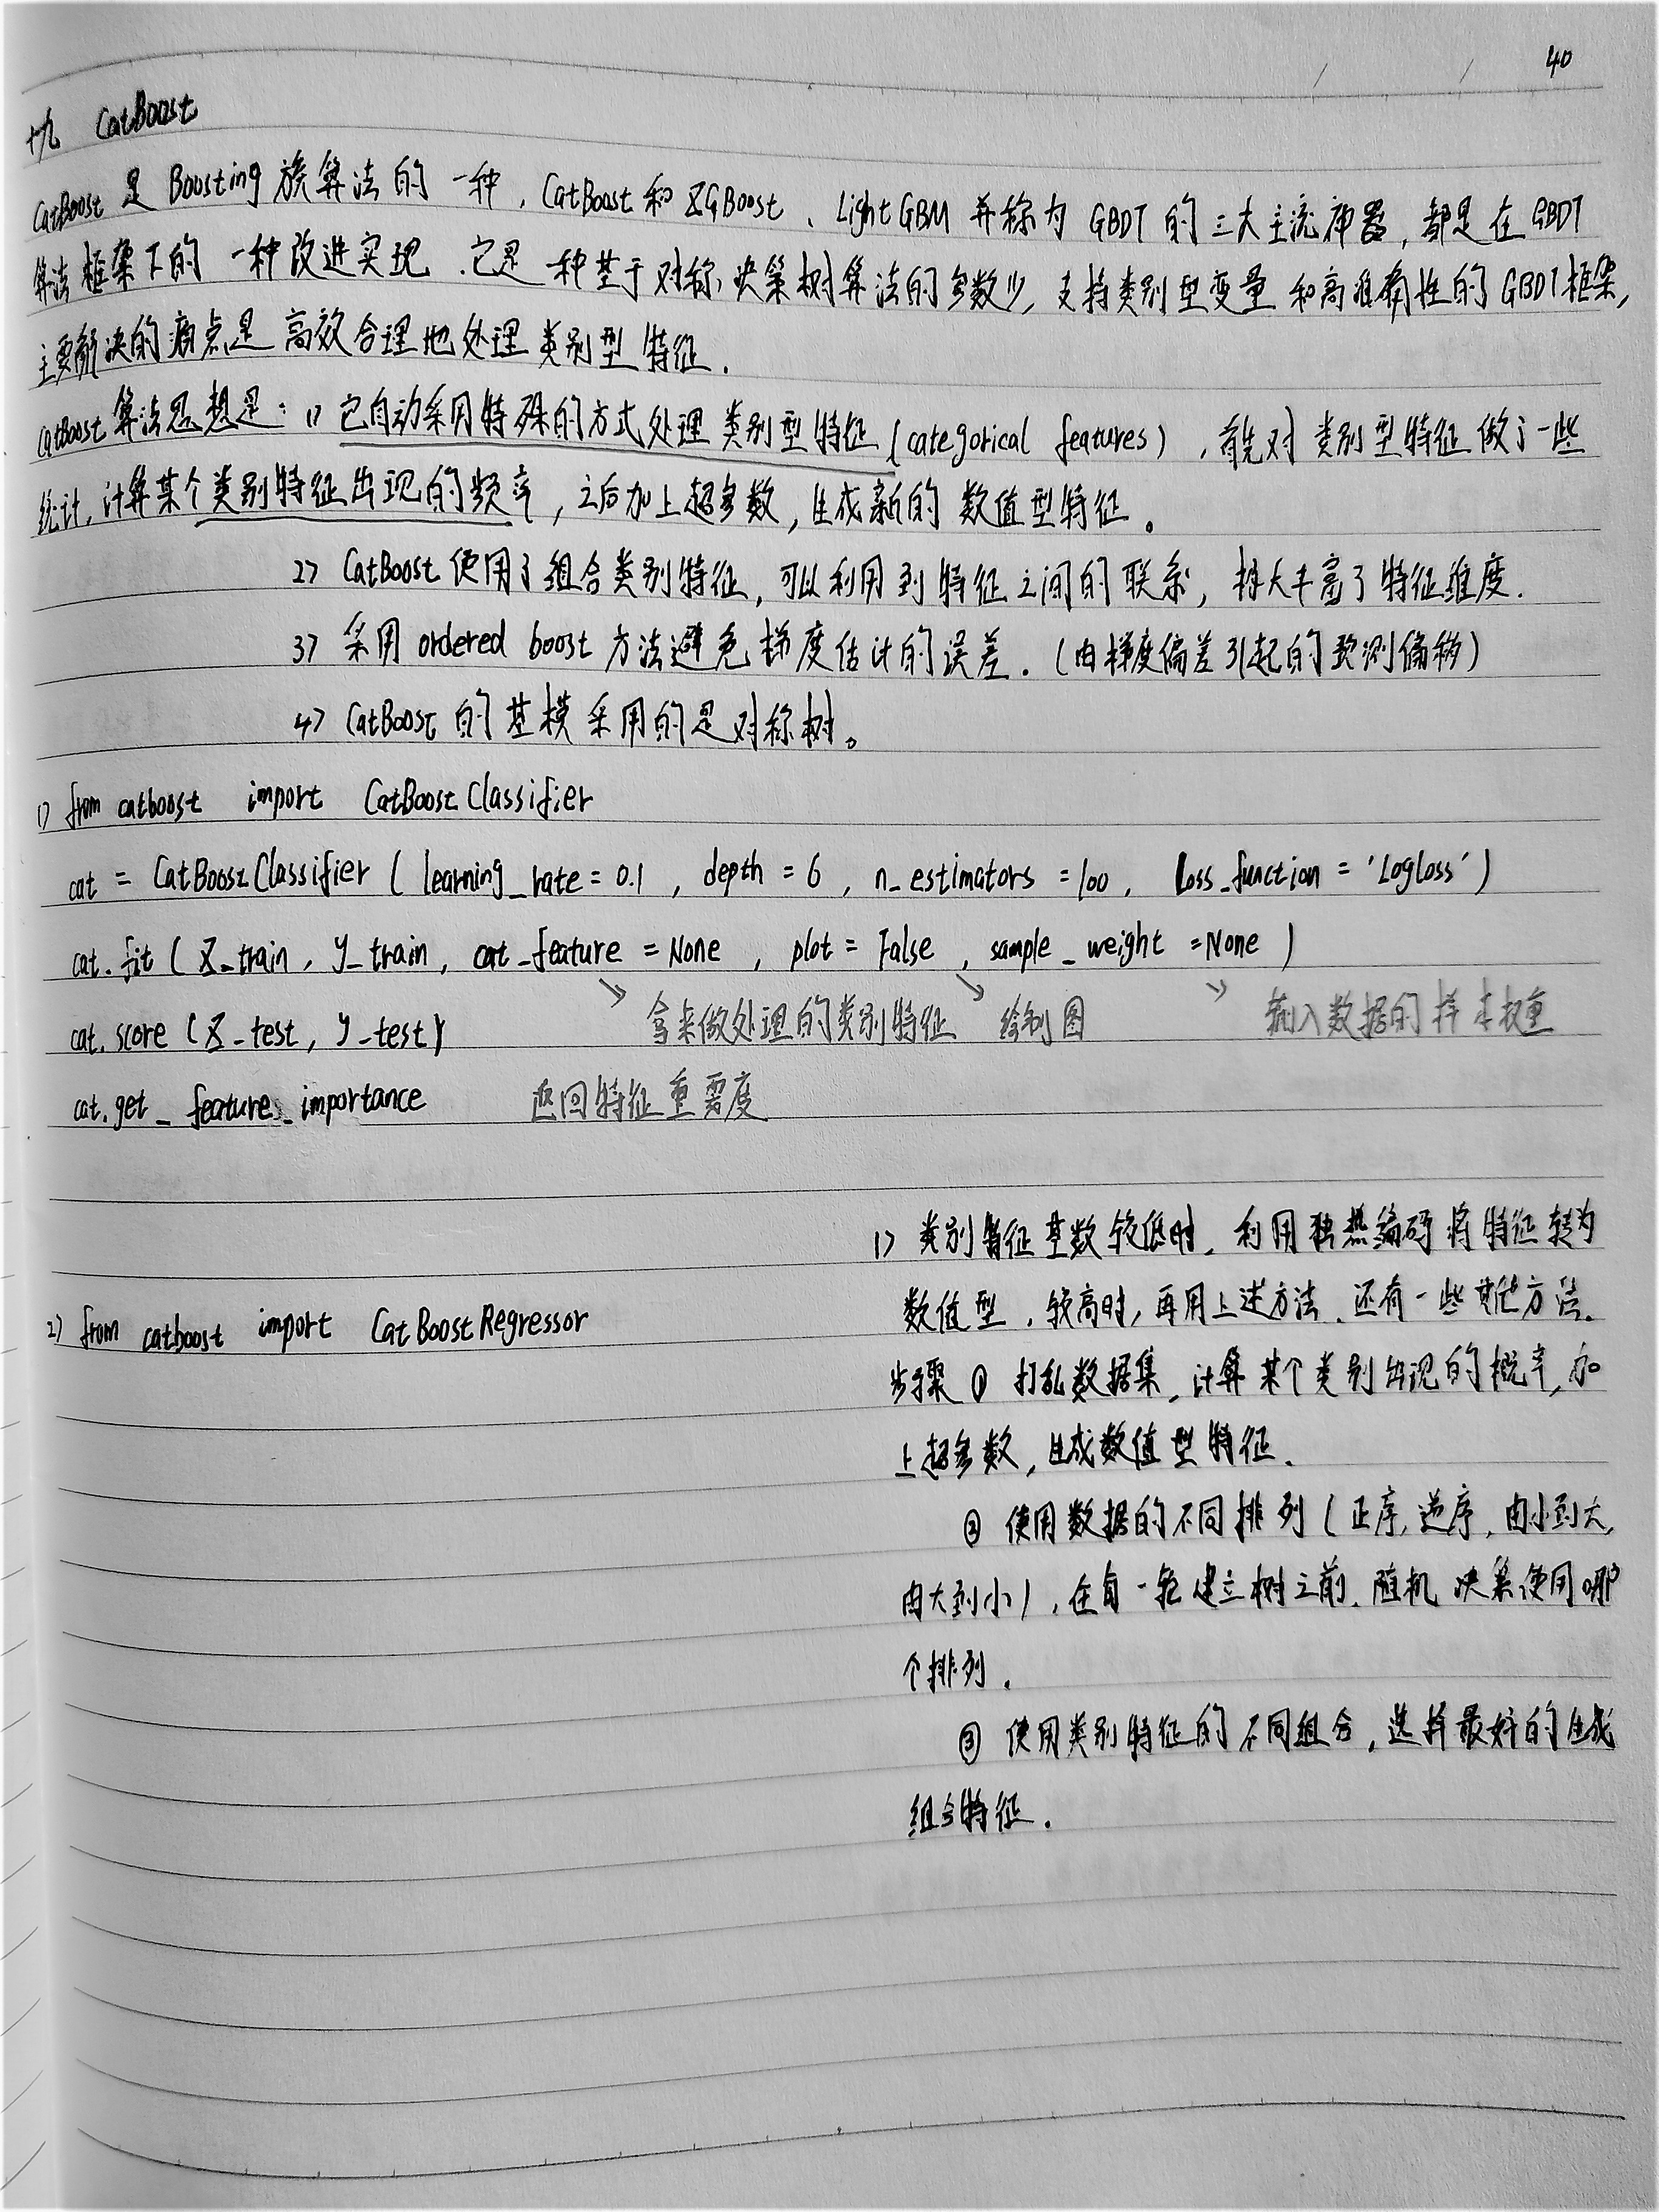 40
十九 CatBoost
CatBoost 是 Boosting 族算法的一种，CatBoost和XGBoost、LightGBM 并称为 GBDT 的三大主流神器，都是在GBDT
算法框架下的一种改进实现．它是一种基于对称决策树算法的参数少，支持类别型变量和高准确性的GBDT框架，
主要解决的痛点是高效合理地处理类别型特征．
CatBoost算法思想是：1) 它自动采用特殊的方式处理类别型特征(categorical features)，首先对类别型特征做了一些
统计，计算某个类别特征出现的频率，之后加上超参数，生成新的数值型特征。
2) CatBoost使用了组合类别特征，可以利用到特征之间的联系，极大丰富了特征维度．
3) 采用 ordered boost 方法避免梯度估计的误差．(由梯度偏差引起的预测偏移)
4) CatBoost 的基模采用的是对称树。
1) from catboost import CatBoostClassifier
cat = CatBoostClassifier ( learning_rate = 0.1 , depth = 6 , n_estimators = 100 , loss_function = 'Logloss' )
cat.fit ( X_train , y_train , cat_feature = None , plot = False , sample_weight = None )
↘ 拿来做处理的类别特征 ↘ 绘制图 ↘ 输入数据的样本权重
cat.score ( X_test , y_test )
cat.get_feature_importance 返回特征重要度
1) 类别特征基数较低时，利用独热编码将特征转为
数值型，较高时，再用上述方法．还有一些其他方法．
2) from catboost import CatBoostRegressor
步骤 ① 打乱数据集，计算某个类别出现的概率，加
上超参数，生成数值型特征．
② 使用数据的不同排列(正序，逆序，由小到大，
由大到小)，在每一轮建立树之前，随机决策使用哪
个排列．
③ 使用类别特征的不同组合，选择最好的生成
组合特征．